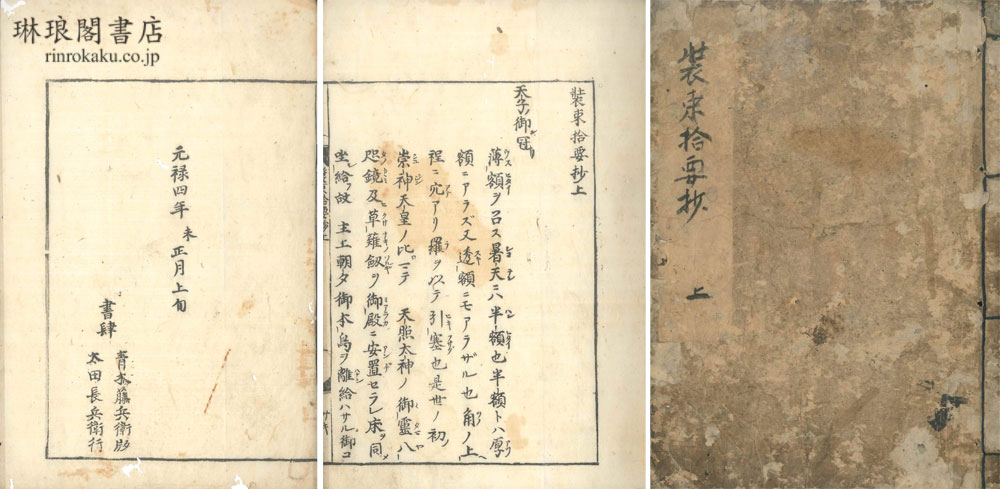 琳琅閣書店
rinrokaku.co.jp
裝束拾要抄
上
裝束拾要抄上
天子ノ御冠
薄額ヲ召ス暑天ニハ半額也半額トハ厚
額ニアラズ又透額ニモアラザル也角ノ上
程ニ穴アリ羅ヲ以テ引塞也是世ノ初
崇神天皇ノ比マテ 天照太神ノ御靈八
咫鏡及草薙釼ヲ御殿ニ安置セラレ床ヲ同
坐シ給フ故 主上朝夕御本鳥ヲ離給ハサル御コ
元禄四年未正月上旬
書肆
青木藤兵衛
太田長兵衛行